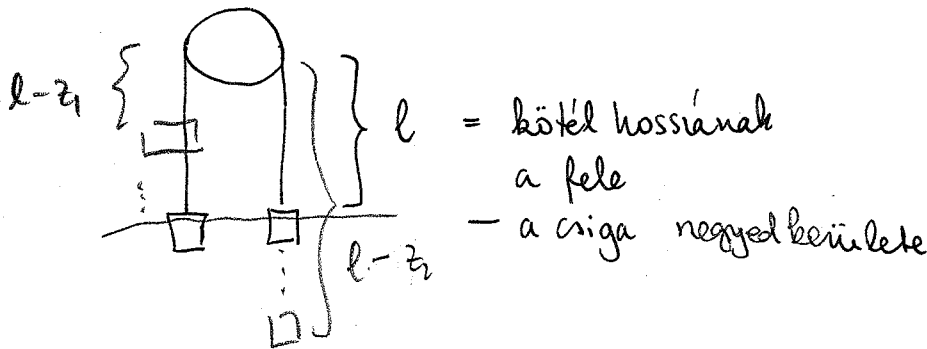 l-z₁
l = kötél hosszának
a fele
- a csiga negyedkerülete
l-z₂